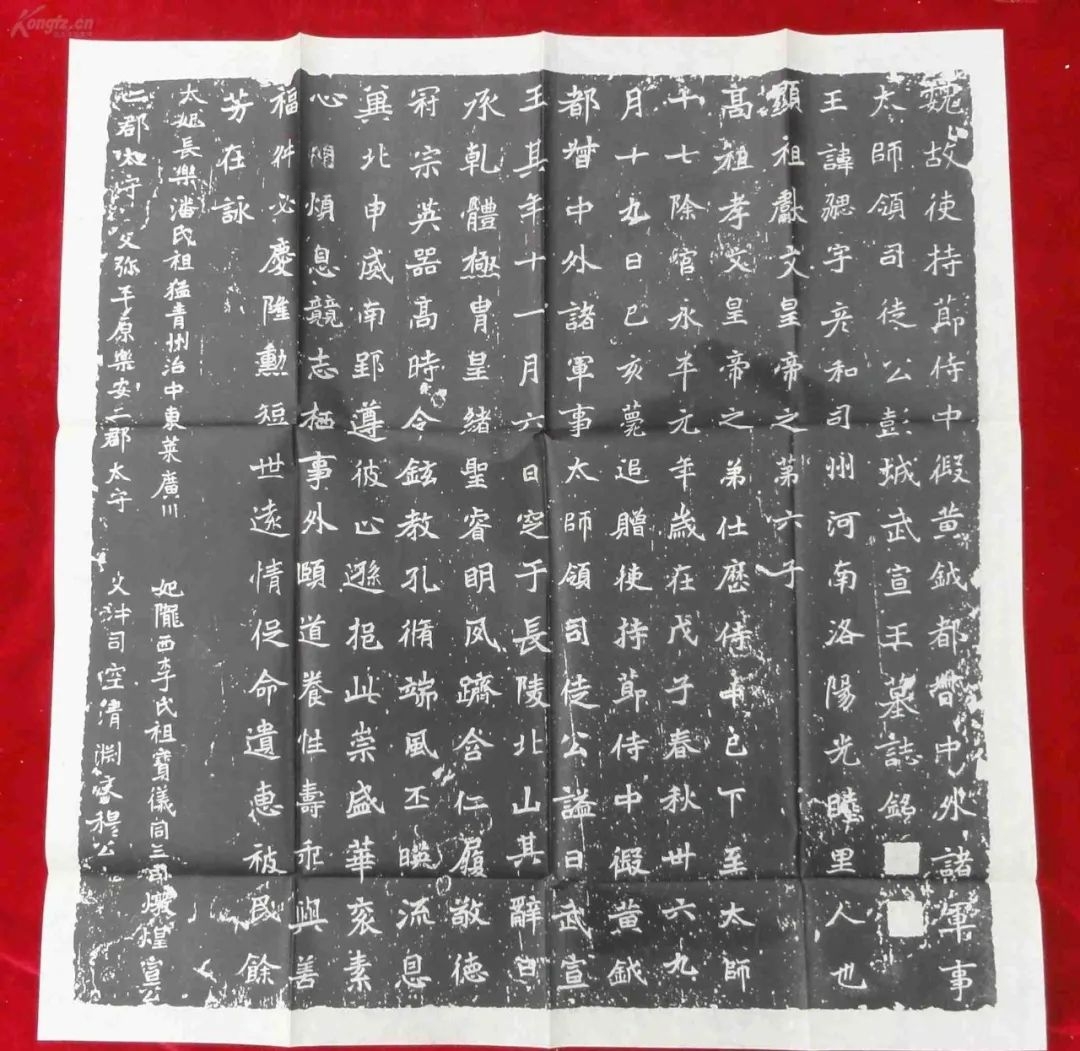 魏故使持節侍中假黃鉞都督中外諸軍事
太師領司徒公彭城武宣王墓誌銘
王諱勰字彥和司州河南洛陽光睦里人也
顯祖獻文皇帝之第六子
高祖孝文皇帝之弟仕歷侍中已下至太師
十七除官永平元年歲在戊子春秋卅六九
月十九日己亥薨追贈使持節侍中假黃鉞
都督中外諸軍事太師領司徒公謚曰武宣
王其年十一月六日窆于長陵北山其辭曰
承乾體極冑皇緒聖睿明夙躋含仁履敬德
冠宗英器高時令鉉教孔脩端風丕映流息
冀北申威南郢遵彼止遜挹此崇盛華袞素
心蠲煩息競志栖事外頤道養性壽乖與善
福舛必慶隆勳短世遠情促命遺惠被民餘
芳在詠
太妃長樂潘氏祖猛青州治中東萊廣川
二郡太守父弥平原樂安二郡太守
妃隴西李氏祖寶儀同三司燉煌宣公
父沖司空清淵穆公
Kongfz.cn